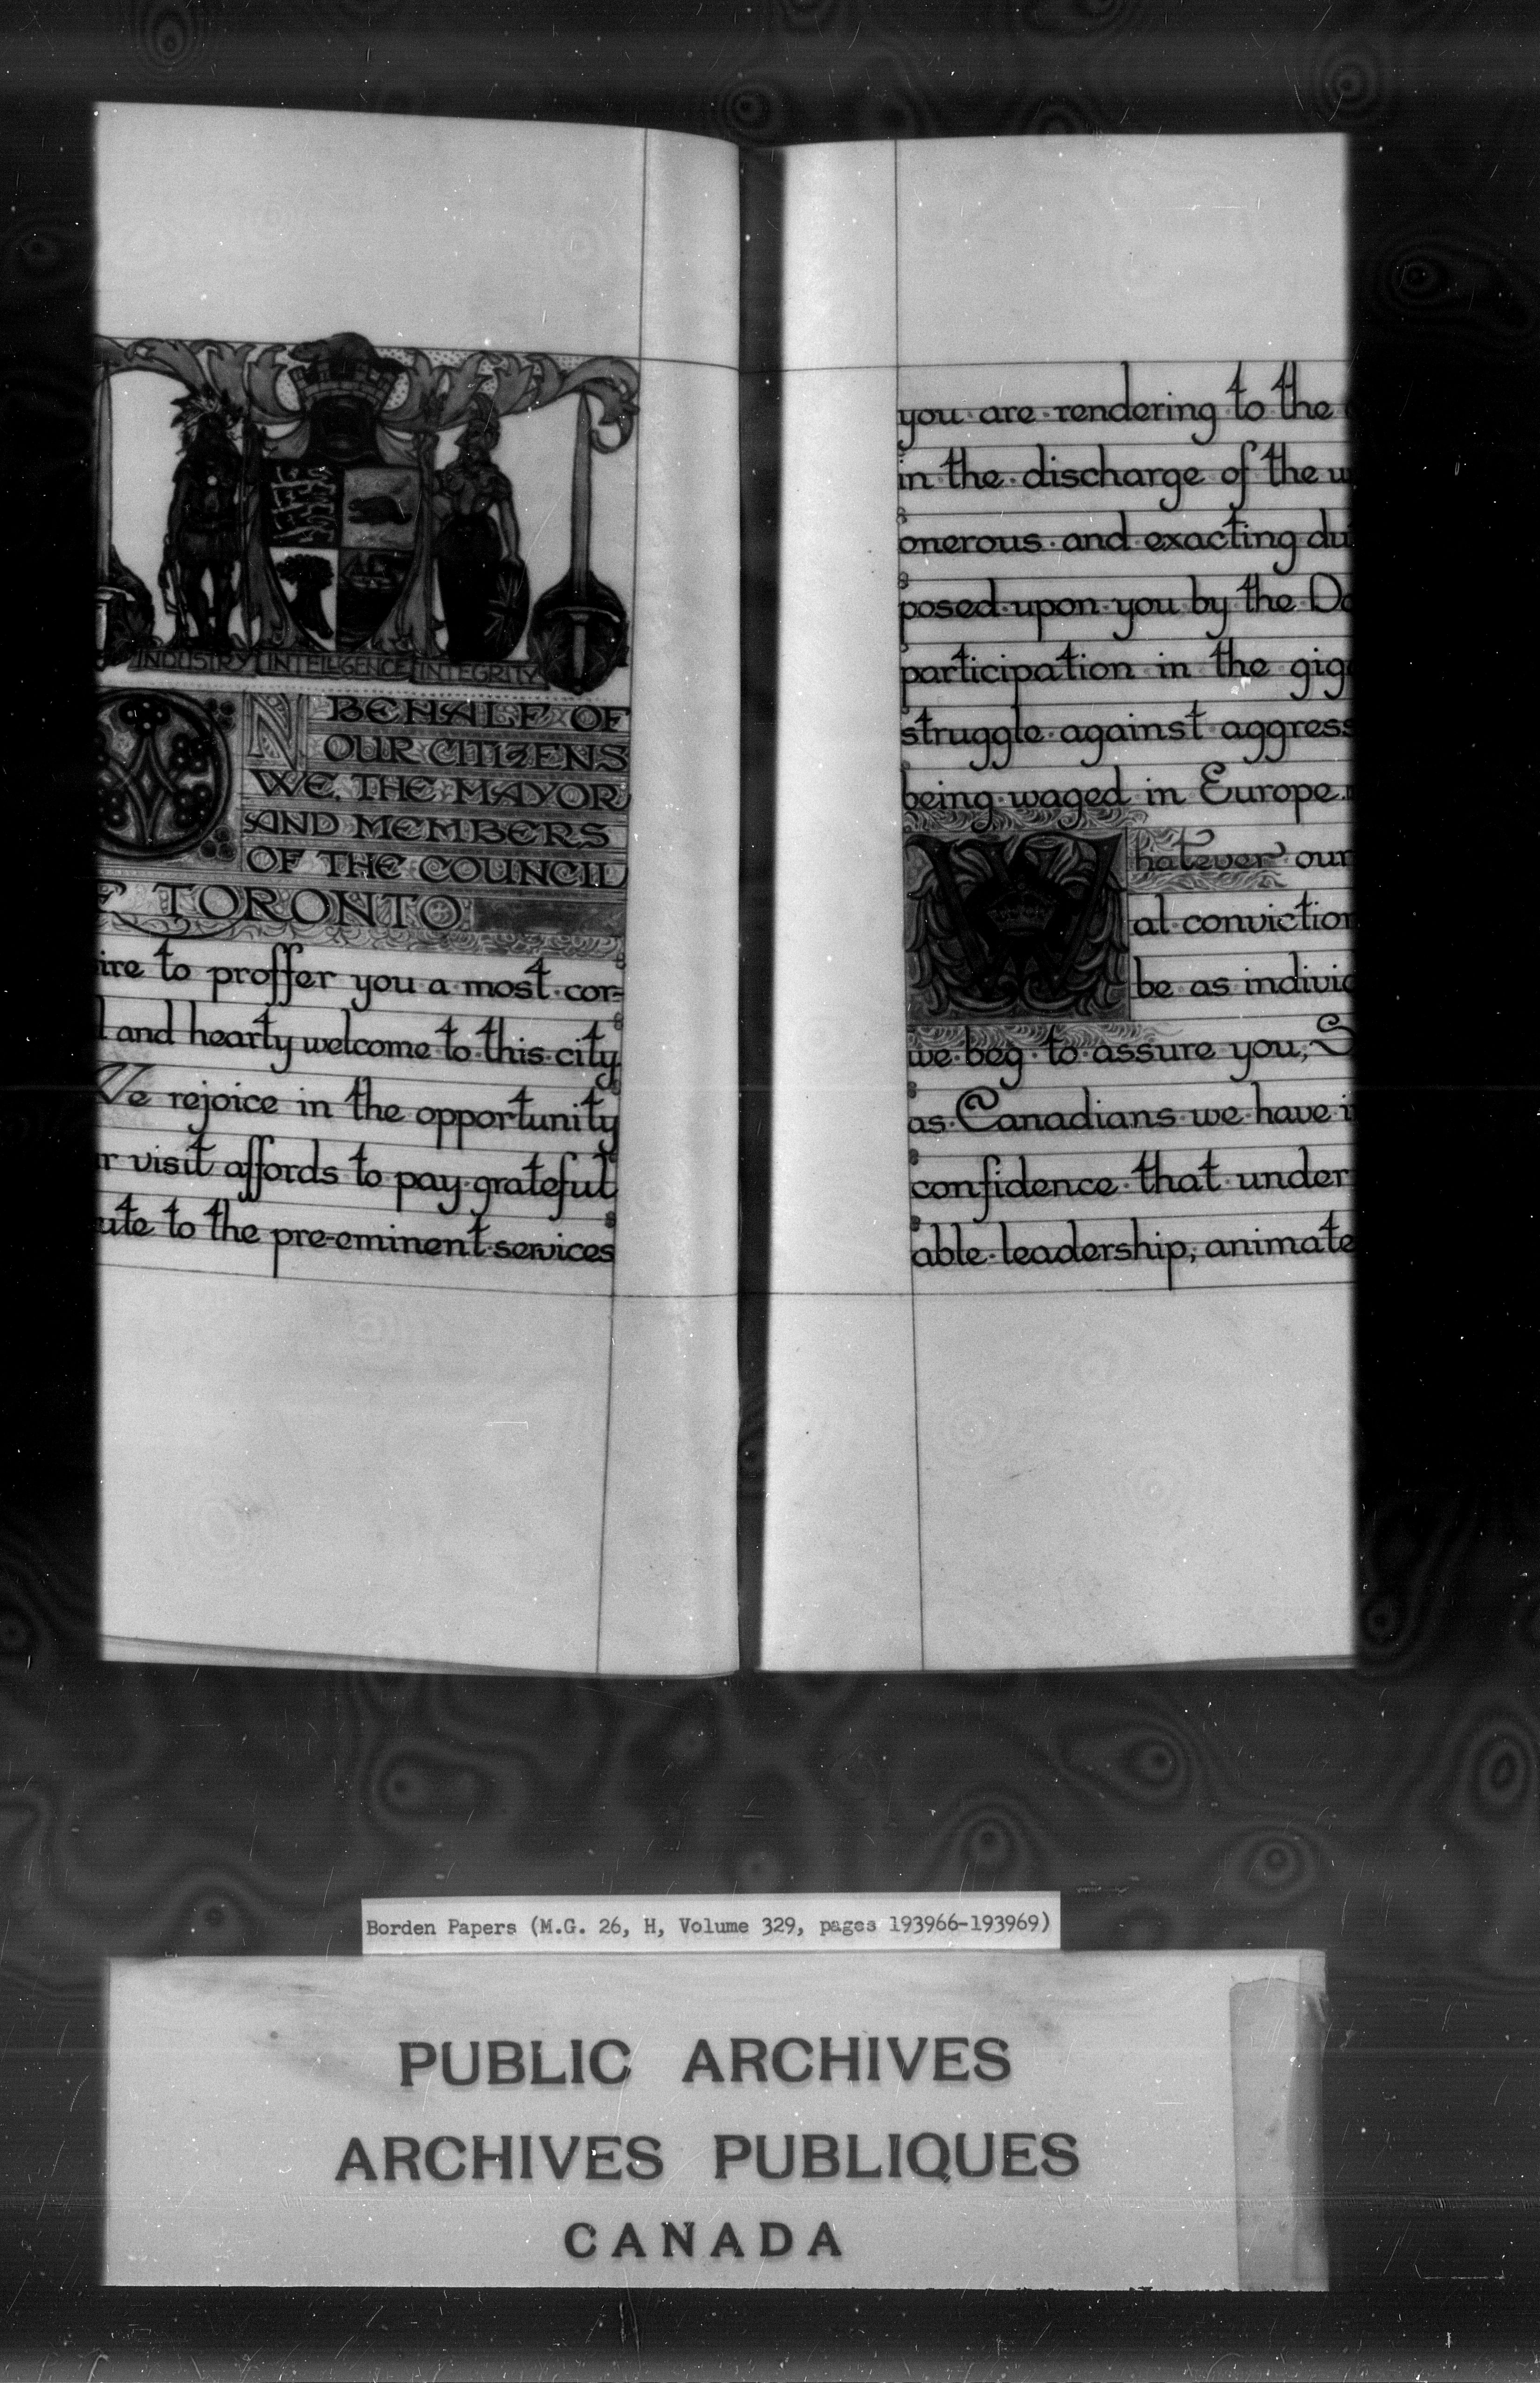 INDUSTRY INTELLIGENCE INTEGRITY
ON BEHALF OF
OUR CITIZENS
WE, THE MAYOR
AND MEMBERS
OF THE COUNCIL
F TORONTO
ire to proffer you a most cor=
l and hearty welcome to this city
We rejoice in the opportunity
r visit affords to pay grateful
ute to the pre-eminent services
you are rendering to the
in the discharge of the w
onerous and exacting du
posed upon you by the Do
participation in the giga
struggle against aggress
being waged in Europe.
Whatever our
al conviction
be as individ
we beg to assure you, S
as Canadians we have i
confidence that under
able leadership, animate
Borden Papers (M.G. 26, H, Volume 329, pages 193966-193969)
PUBLIC ARCHIVES
ARCHIVES PUBLIQUES
CANADA